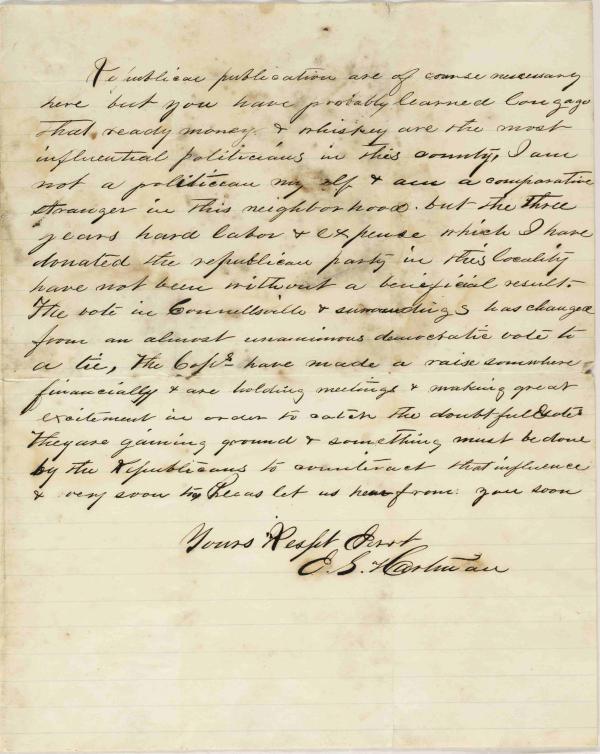 Republican publication are of course necessary
here but you have probably learned long ago
that ready money & whiskey are the most
influential politicians in this county, I am
not a politicean my self & am a comparative
stranger in this neighborhood. but the three
years hard labor & expense which I have
donated the republican party in this locality
have not been without a beneficial result.
The vote in Connellsville & surroundings has changed
from an almost unanimous democratic vote to
a tie, The Cop's have made a raise somwhere
financially & are holding meetings & making great
excitement in order to catch the doubtfull vote
They are gaining ground & something must be done
by the Republicans to counteract that influence
& very soon too Pleas let us hear from you soon
Yours Respt Servt
E. S. Hartman